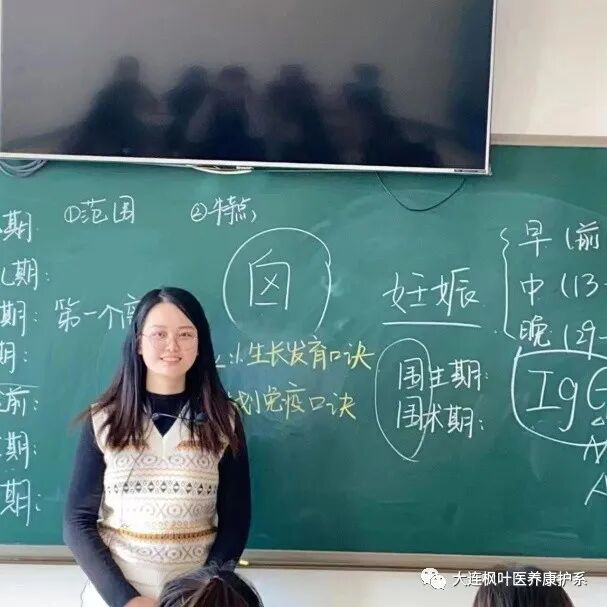 期
①范围 ②特点
儿期：
期：第一个高
期：
前：
期：
期：
囟
小儿生长发育口诀
计划免疫口诀
妊娠
早(前
中(13-
晚(29-
围生期：
围术期：
IgG
大连枫叶医养康护系